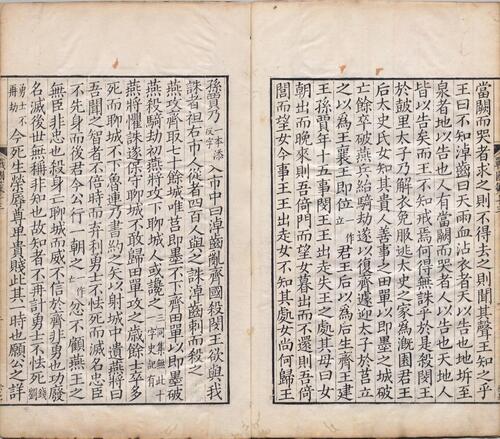 當闕而哭者求之則不得去之則聞其聲王知之乎
王曰不知淖齒曰天雨血沾衣者天以告也地坼至
泉者地以告也人有當闕而哭者人以告也天地人
皆以告矣而王不知戒焉何得無誅乎於是殺閔王
於鼓里太子乃解衣免服逃太史之家為溉園君王
后太史氏女知其貴人善事之田單以即墨之城破
亡餘卒破燕兵紿騎劫遂以復齊遽迎太子於莒立
之以為王襄王即位作立君王后以為后生齊王建
王孫賈年十五事閔王王出走失王之處其母曰女
朝出而晚來則吾倚門而望女暮出而不還則吾倚
閭而望女今事王王出走女不知其處女尚何歸王
孫賈乃本添反字入市中曰淖齒亂齊國殺閔王欲與我
誅者袒右市人從者四百人與之誅淖齒刺而殺之
燕攻齊取七十餘城唯莒即墨不下齊田單以即墨破
燕殺騎劫初燕將攻下聊城人或讒之三同集無此十字史記有
燕將懼誅遂保守聊城不敢歸田單攻之歲餘士卒多
死而聊城不下魯連乃書約之矢以射城中遺燕將曰
吾聞之智者不倍時而弃利勇士不怯死而滅名忠臣
不先身而後君今公行一朝之作忿不顧燕王之
無臣非忠也殺身亡聊城而威不信於齊非勇也功廢
名滅後世無稱非知也故知者不再計勇士不怯死劉錢
勇士不再劫今死生榮辱尊卑貴賤此其一時也願公之詳